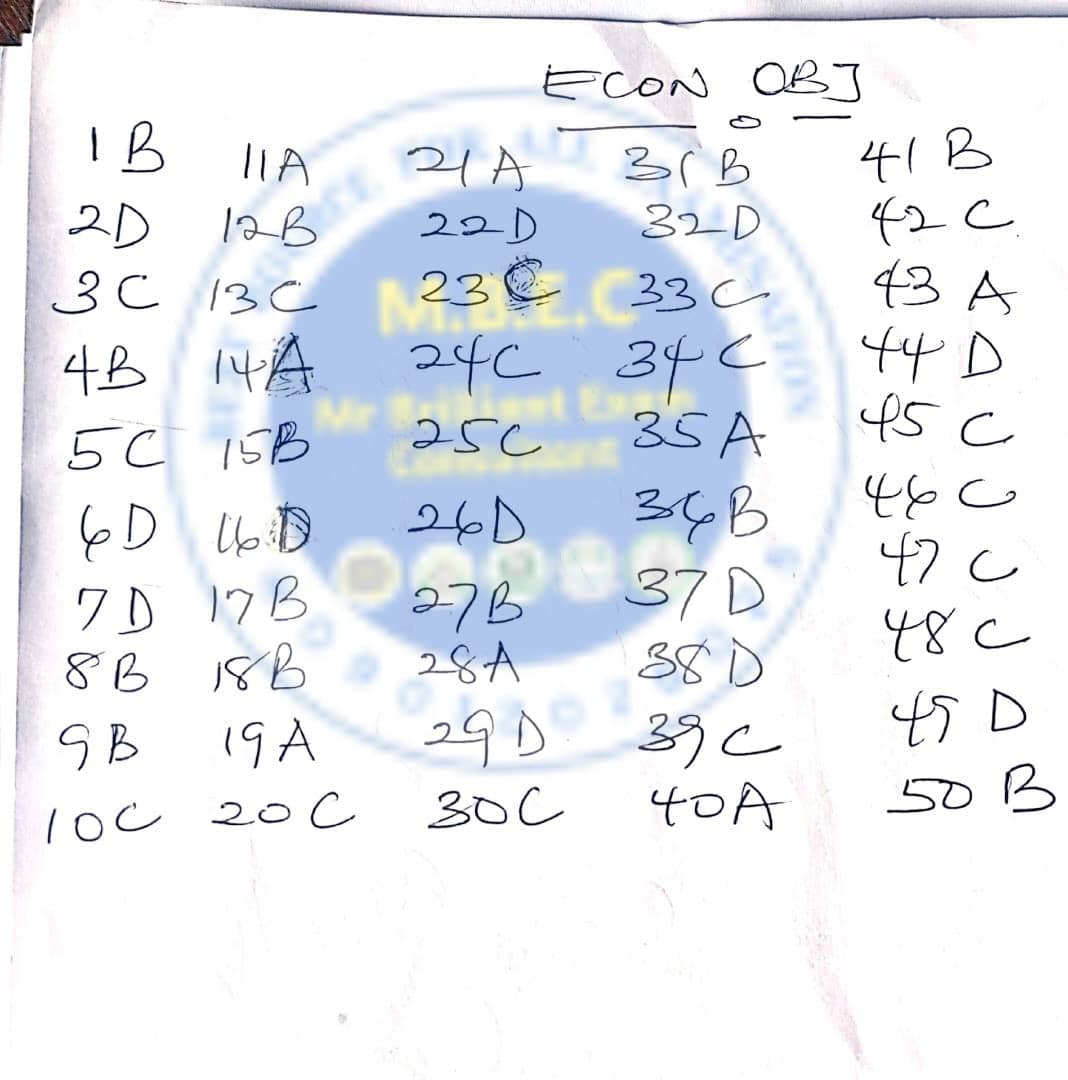 ECON OBJ
1B 11A 21A 31B 41B
2D 12B 22D 32D 42C
3C 13C 23C 33C 43A
4B 14A 24C 34C 44D
5C 15B 25C 35A 45C
6D 16D 26D 36B 46C
7D 17B 27B 37D 47C
8B 18B 28A 38D 48C
9B 19A 29D 39C 49D
10C 20C 30C 40A 50B
M.B.E.C
Mr Brilliant Exam
Consultant